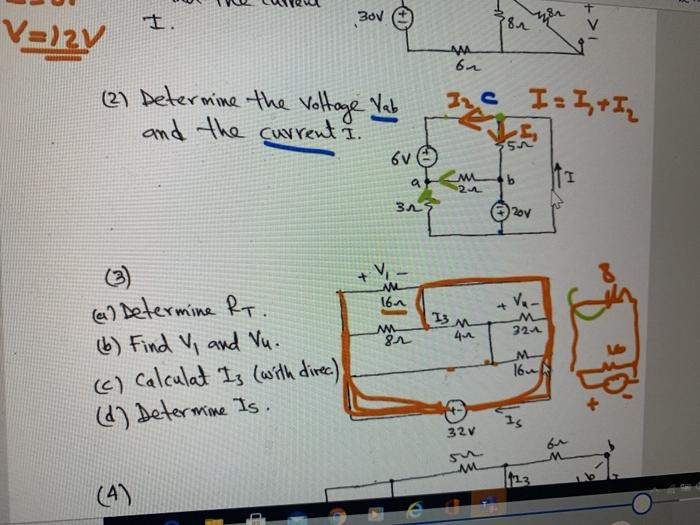 V=12V
I.
30V
8Ω
8Ω
+
V
-
6Ω
(2) Determine the voltage Vab
and the current I.
I2 C I = I1 + I2
I1
5Ω
6V
a
2Ω
b
I
3Ω
20V
(3)
(a) Determine RT.
(b) Find V1 and V4.
(c) Calculat I3 (with direc)
(d) Determine Is.
+ V1 -
16Ω
I3
8Ω
4Ω
+ V4 -
32Ω
16Ω
Is
32V
8
16
+ -
(4)
5Ω
6Ω
b
I23